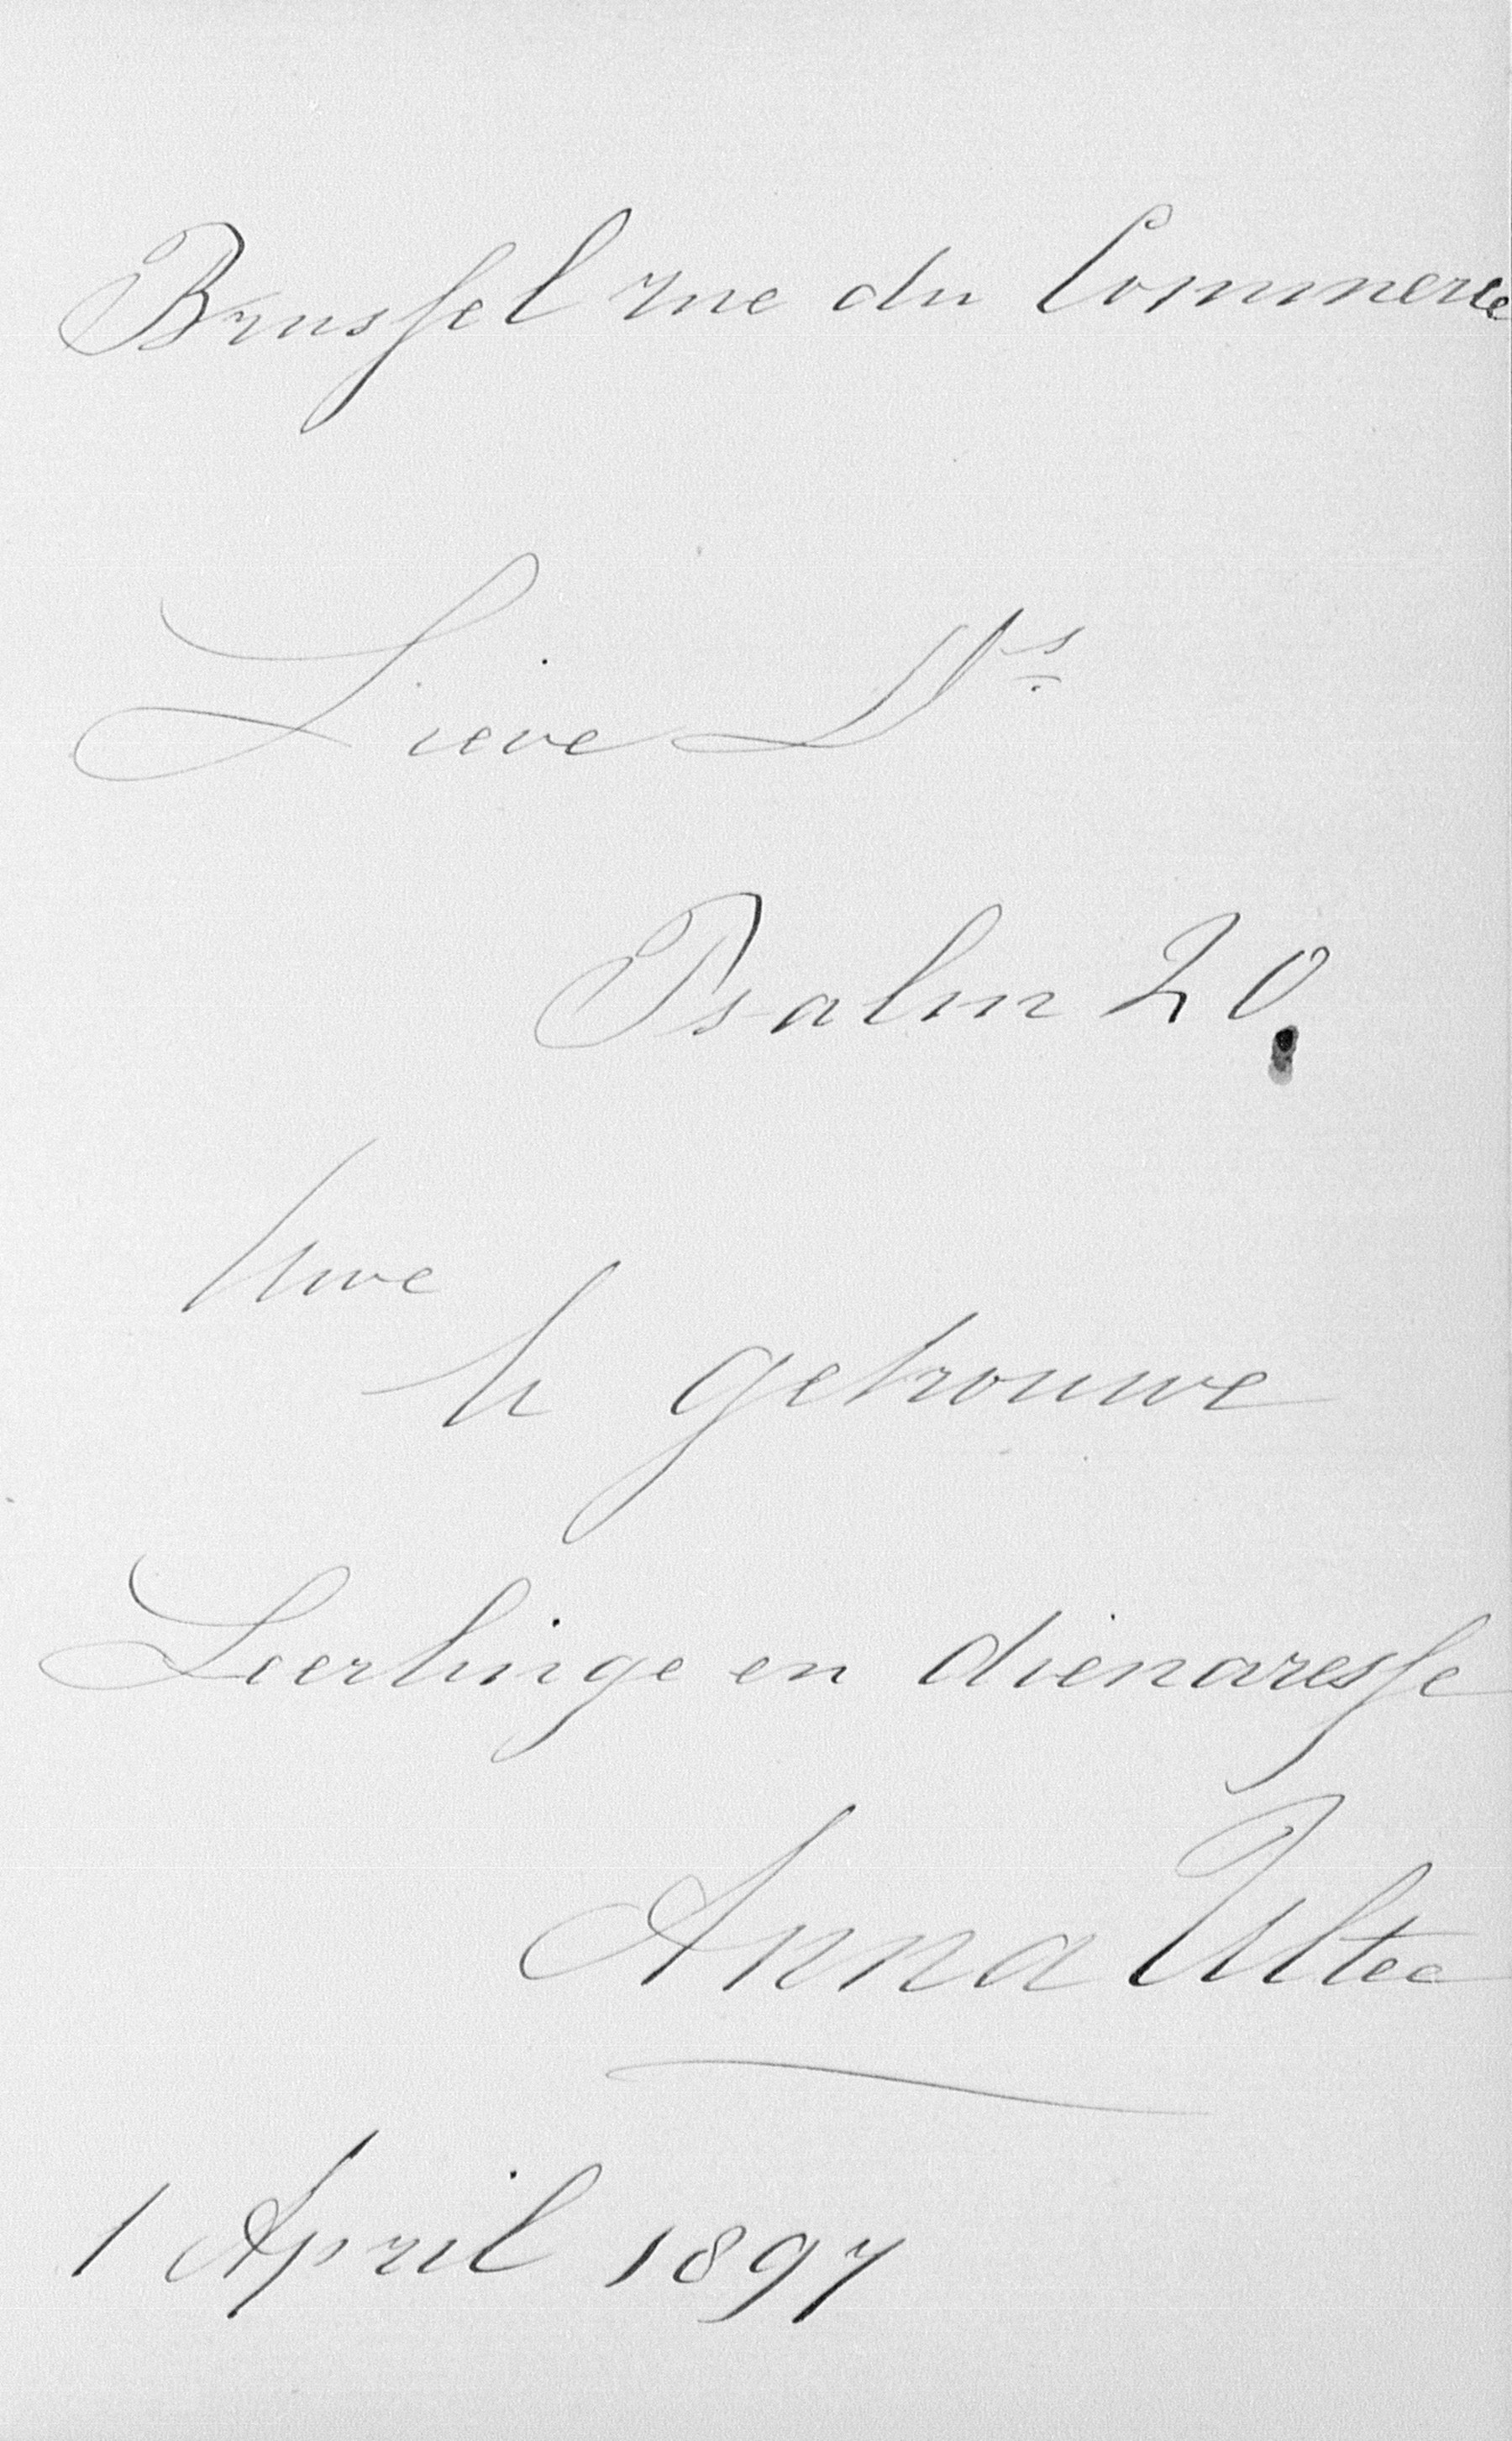 Brussel rue du Commerce
Lieve Ds
Psalm 20.
Uwe
U getrouwe
Leerlinge en dienaresse
Anna Ultee
1 April 1897